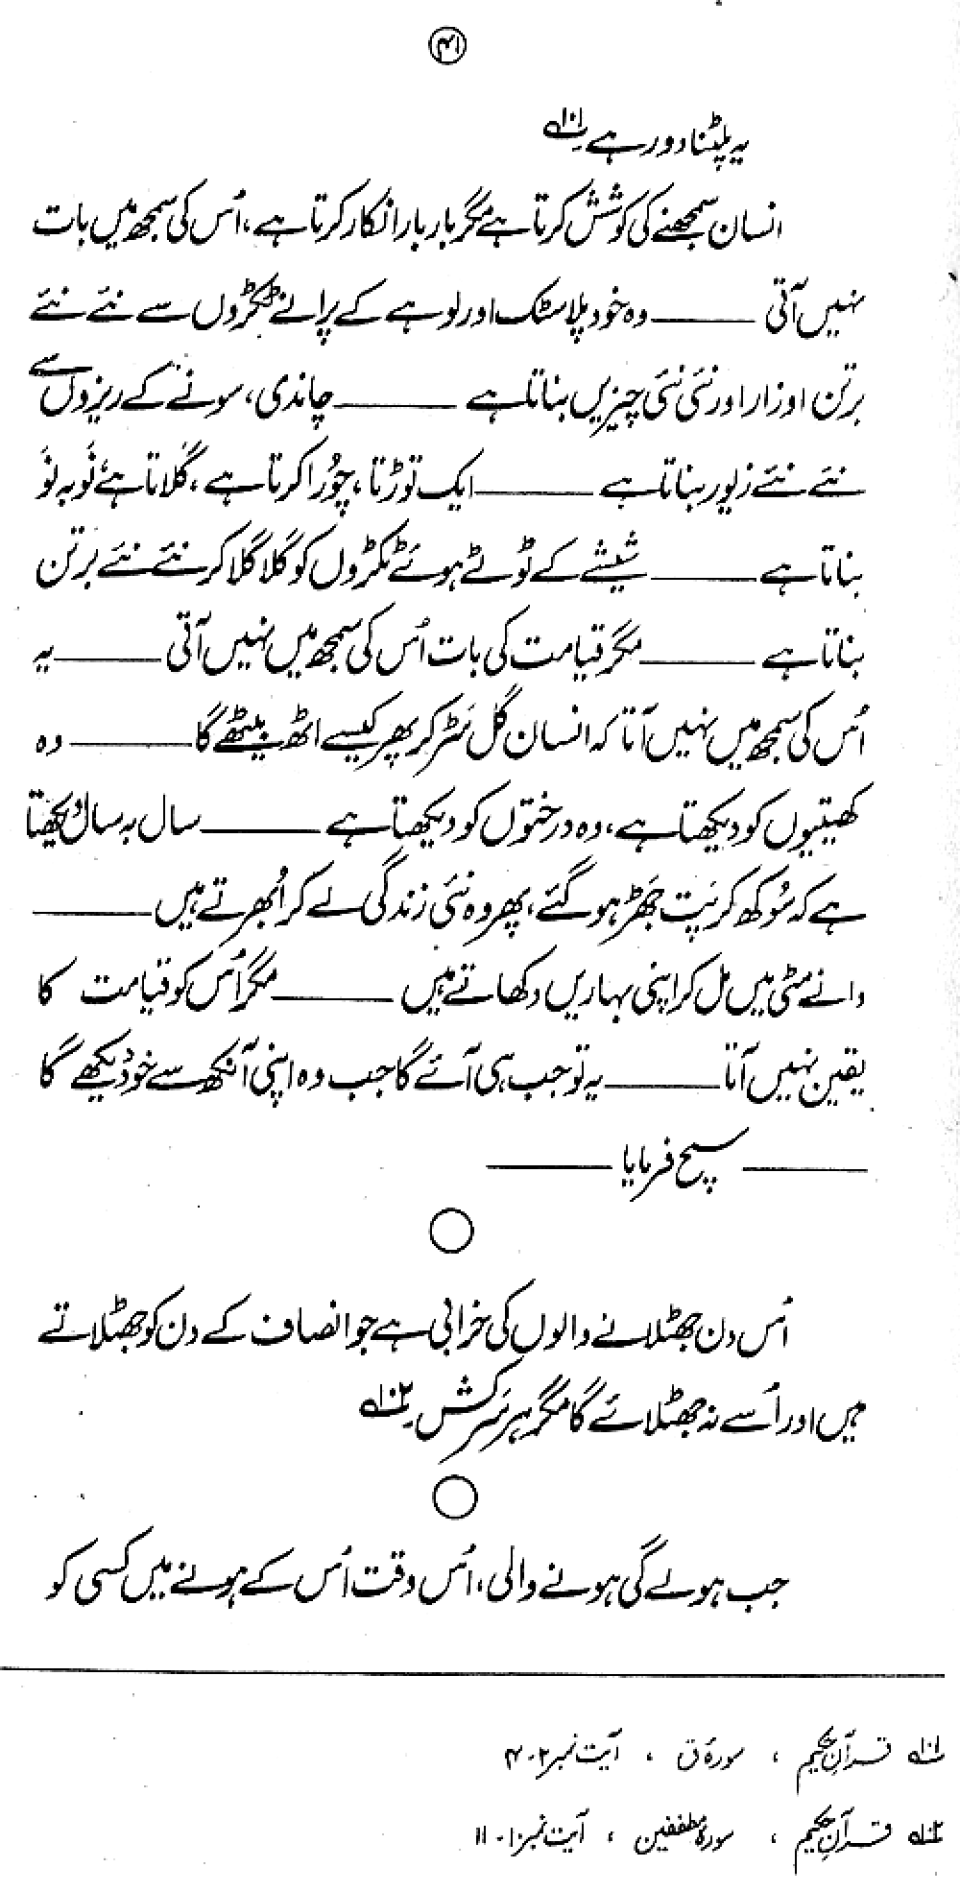 ۴۱
یہ پلٹنا دور ہے ۱۰۱؎
انسان سمجھنے کی کوشش کرتا ہے مگر بار بار انکار کرتا ہے، اُس کی سمجھ میں بات
نہیں آتی ـــــ وہ خود پلاسٹک اور لوہے کے پرانے ٹکڑوں سے نئے نئے
برتن اوزار اور نئی نئی چیزیں بناتا ہے ـــــ چاندی، سونے کے ریزوں سے
نئے نئے زیور بناتا ہے ـــــ ایک توڑتا، چُورا کرتا ہے، گلاتا ہے، نَو بہ نَو
بناتا ہے ـــــ شیشے کے ٹوٹے ہوئے ٹکڑوں کو گلا گلا کر نئے نئے برتن
بناتا ہے ـــــ مگر قیامت کی بات اُس کی سمجھ میں نہیں آتی ـــــ یہ
اُس کی سمجھ میں نہیں آتا کہ انسان گل سَڑ کر پھر کیسے اٹھ بیٹھے گا ـــــ وہ
کھیتیوں کو دیکھتا ہے، وہ درختوں کو دیکھتا ہے ـــــ سال بہ سال دیکھتا
ہے کہ سُوکھ کر پَت جَھڑ ہو گئے، پھر وہ نئی زندگی لے کر اُبھرتے ہیں ـــــ
دانے مٹی میں مل کر اپنی بہاریں دکھاتے ہیں ـــــ مگر اُس کو قیامت کا
یقین نہیں آتا ـــــ یہ تو جب ہی آئے گا جب وہ اپنی آنکھ سے خود دیکھے گا
ـــــ سچ فرمایا ـــــ
اُس دن جھٹلانے والوں کی خرابی ہے جو انصاف کے دن کو جھٹلاتے
ہیں اور اُسے نہ جھٹلائے گا مگر ہر سَرکش ۱۰۲؎
جب ہولے گی ہونے والی، اُس وقت اُس کے ہونے میں کسی کو
۱۰۱؎ قرآنِ حکیم ، سورۂ ق ، آیت نمبر ۲-۴
۱۰۲؎ قرآنِ حکیم ، سورۂ مطففین ، آیت نمبر ۱۰-۱۱